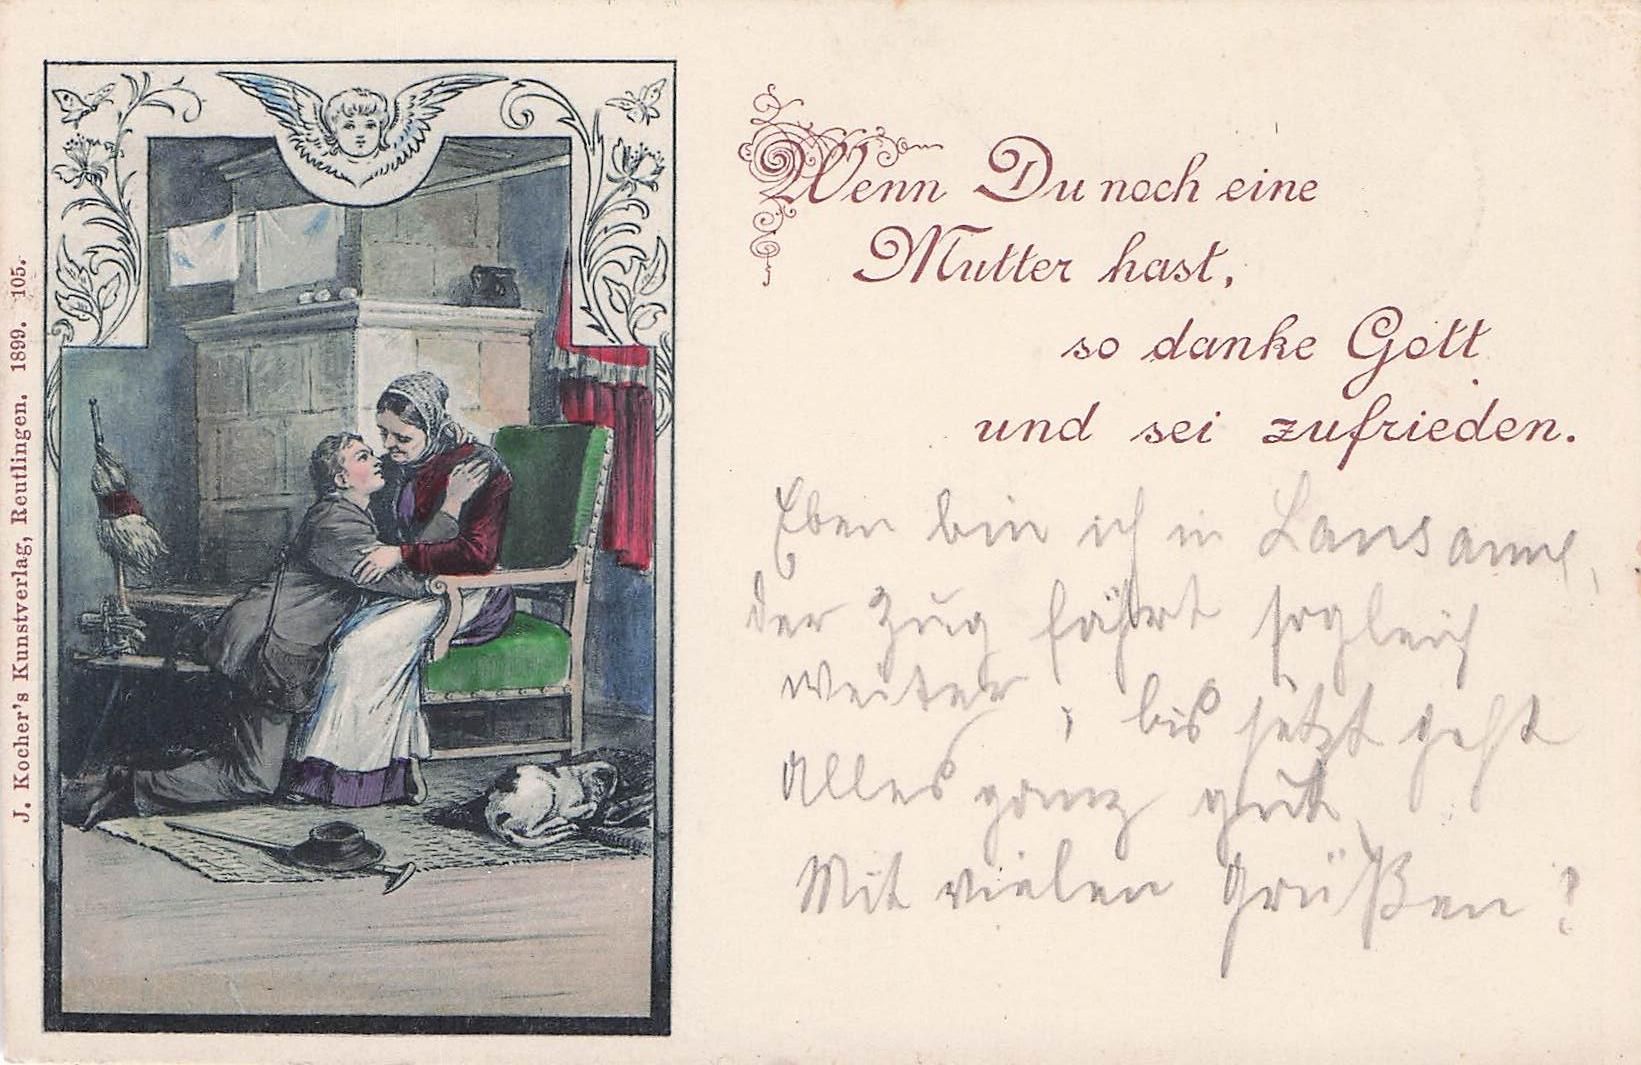 Wenn Du noch eine
Mutter hast,
so danke Gott
und sei zufrieden.
Eben bin ich in Lausanne,
der Zug fährt sogleich
weiter, bis jetzt geht
alles ganz gut
Mit vielen Grüßen!
J. Kocher's Kunstverlag, Reutlingen. 1899. 105.